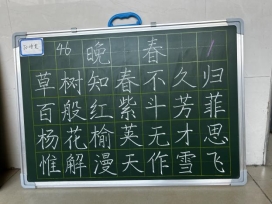 46 晚 春
草树知春不久归
百般红紫斗芳菲
杨花榆英无才思
惟解漫天作雪飞